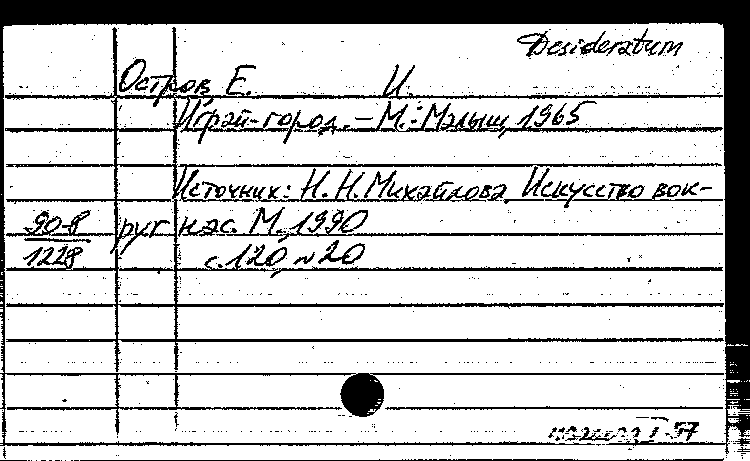 Desideratum
Остров, Е. И.
Играй-город. – М.: Малыш, 1965
Источник: Н. Н. Михайлова. Искусство вок-
90-8 руг нас. М., 1990
1228 с. 120, № 20
I-57